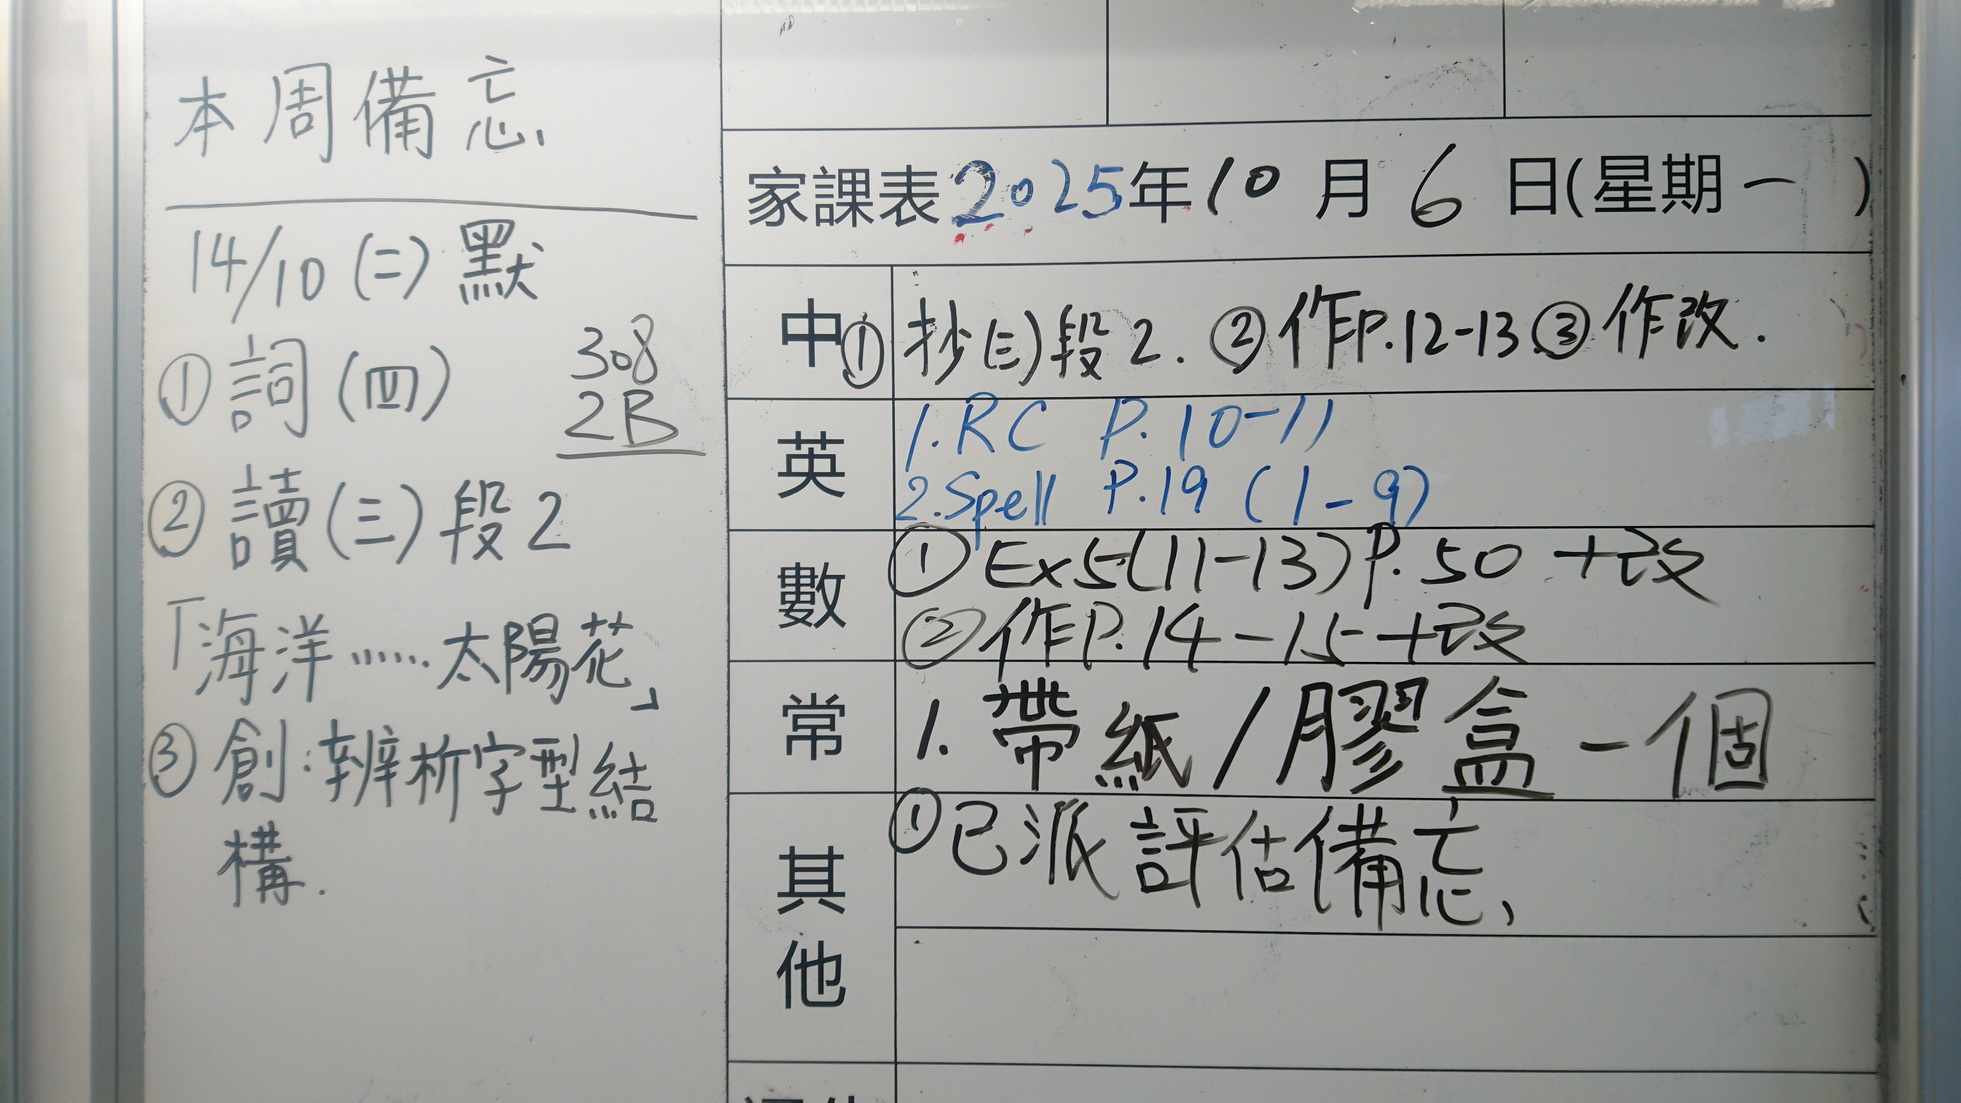 本周備忘
14/10 (二) 默
① 詞 (四)
308
2B
② 讀 (三) 段 2
「海洋……太陽花」
③ 創:辨析字型結
構.
家課表2025年10月6日(星期一)
中 ① 抄(三)段2. ②作P.12-13 ③作改.
英
1. RC P.10-11
2. Spell P.19 (1-9)
數
① Ex5(11-13) P.50 +改
② 作P.14-15+改
常 1. 帶紙/膠盒一個
其他
① 已派評估備忘